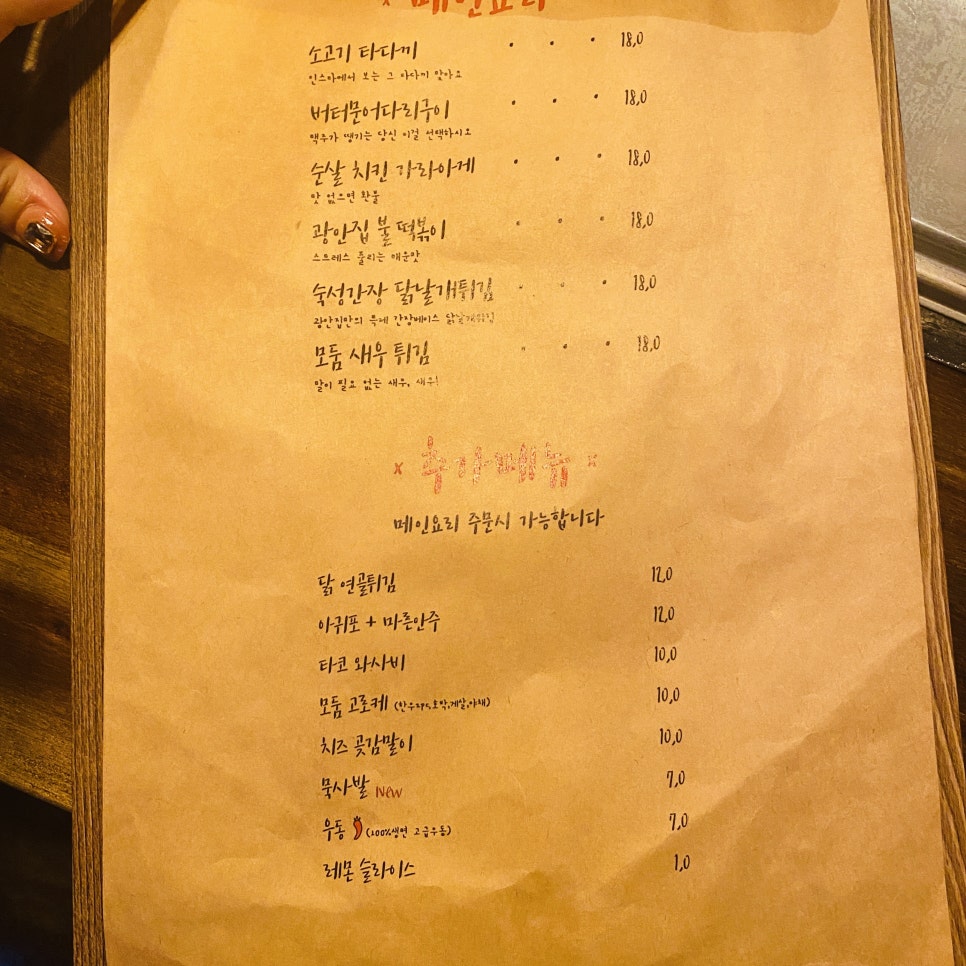 메인요리
소고기 타다끼 . . . 18,0
인스타에서 보는 그 타다끼 맞아요
버터문어다리구이 . . . 18,0
맥주가 땡기는 당신 이걸 선택하시오
순살 치킨 가라아게 . . . 18,0
맛 없으면 환불
광안집 불 떡볶이 . . . 18,0
스트레스 풀리는 매운맛
숙성간장 닭날개튀김 . . . 18,0
광안집만의 특제 간장베이스 닭날개튀김
모둠 새우 튀김 . . . 18,0
말이 필요 없는 새우, 새우!
x 추가메뉴 x
메인요리 주문시 가능합니다
닭 연골튀김 12,0
아귀포 + 마른안주 12,0
타코 와사비 10,0
모둠 고로케 (한우2PC,호박,게살,야채) 10,0
치즈 곶감말이 10,0
묵사발 New 7,0
우동 (100%생면 고급우동) 7,0
레몬 슬라이스 1,0